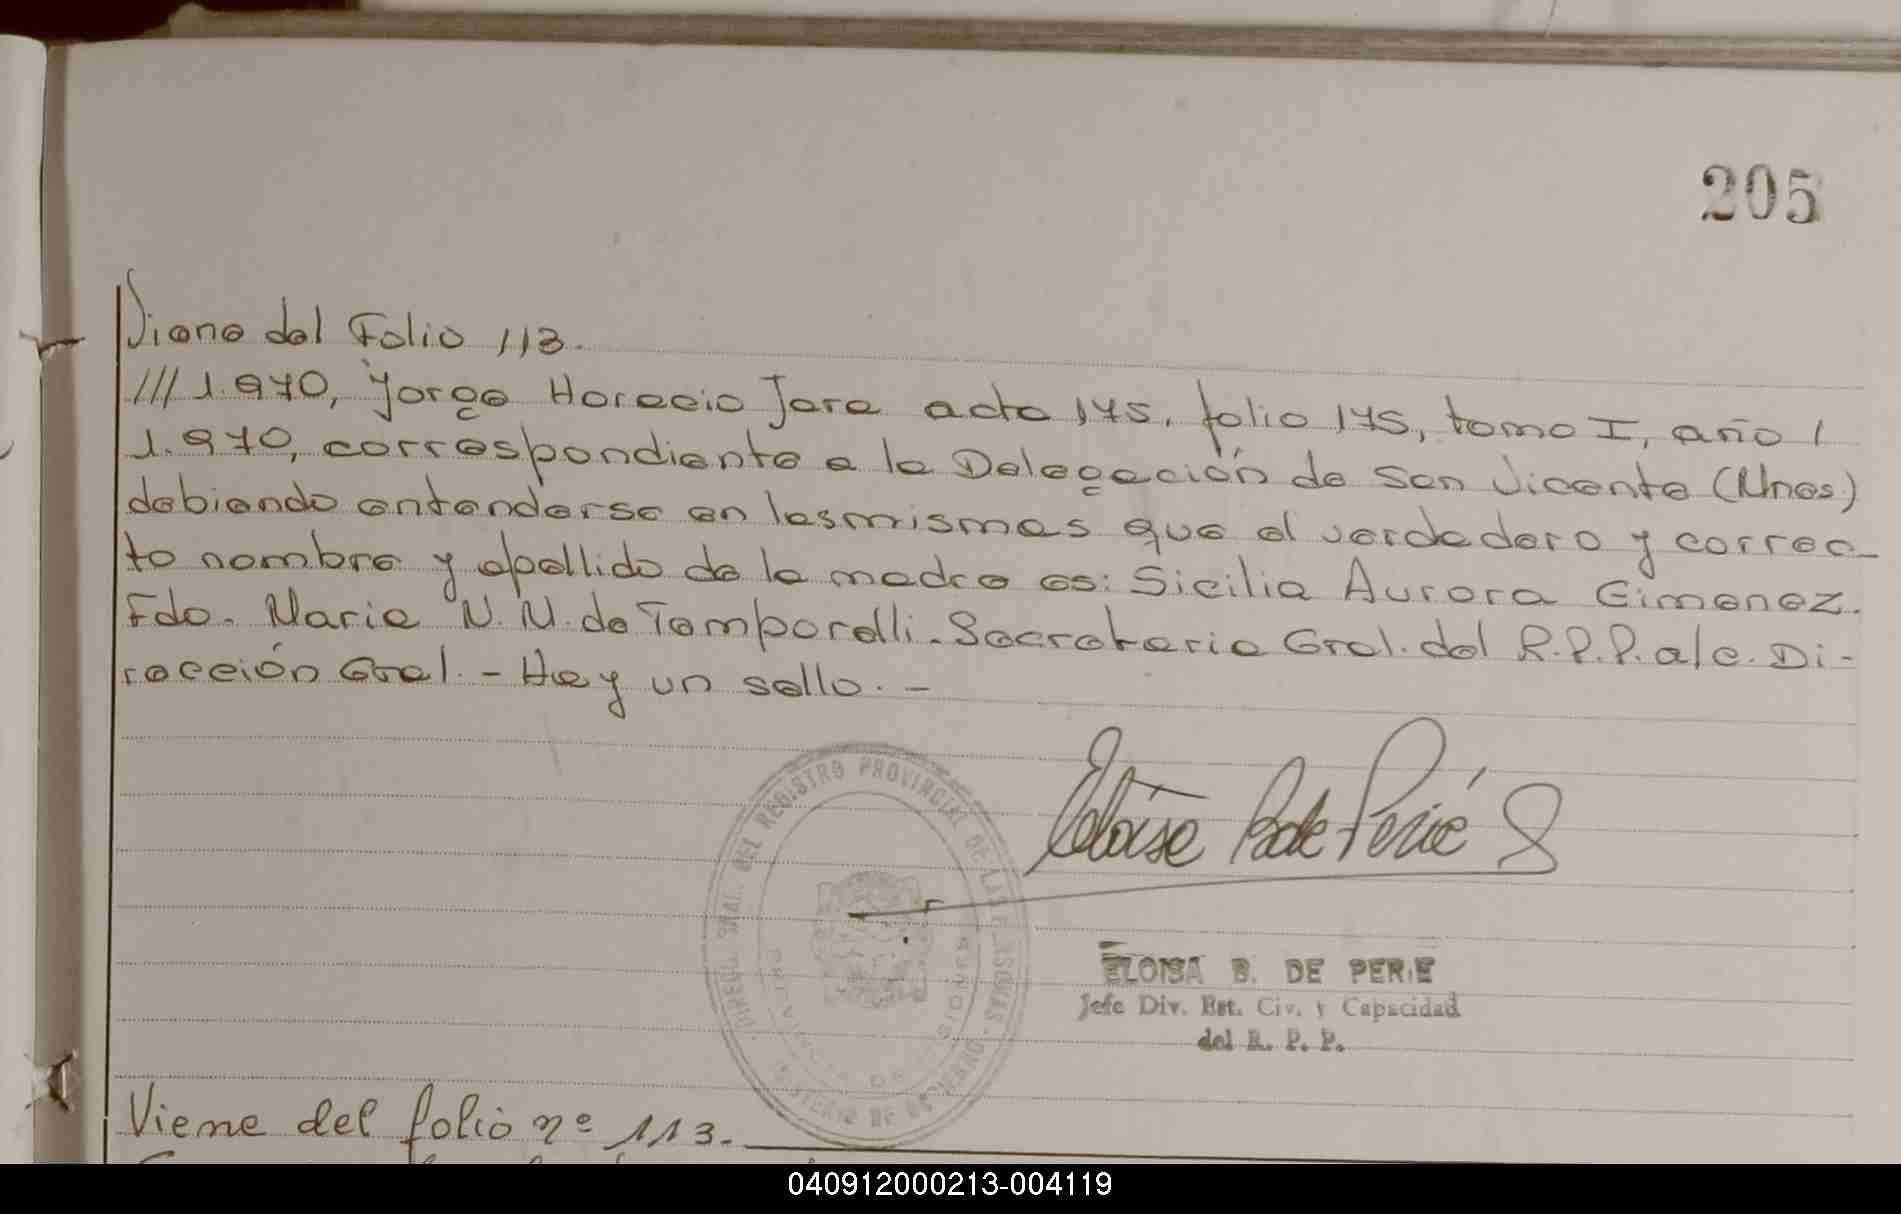 205
Viene del Folio 113.
/// 1.970, Jorge Horacio Jara acta 175, folio 175, tomo I, año /
1.970, correspondiente a la Delegación de San Vicente (Mnes.)
debiendo entenderse en las mismas que el verdadero y correc-
to nombre y apellido de la madre es: Sicilia Aurora Gimenez.
Fdo. Maria N. N. de Temporelli. Secretaria Gral. del R.P.P. a/c. Di-
rección Gral. - Hay un sello. -
DIRECC. GRAL. DEL REGISTRO PROVINCIAL DE LAS PERSONAS
MINISTERIO DE GOBIERNO
PROVINCIA DE MISIONES
Eloisa B de Perié
ELOISA B. DE PERIE
Jefe Div. Est. Civ. y Capacidad
del R. P. P.
Viene del folio nº 113.
040912000213-004119